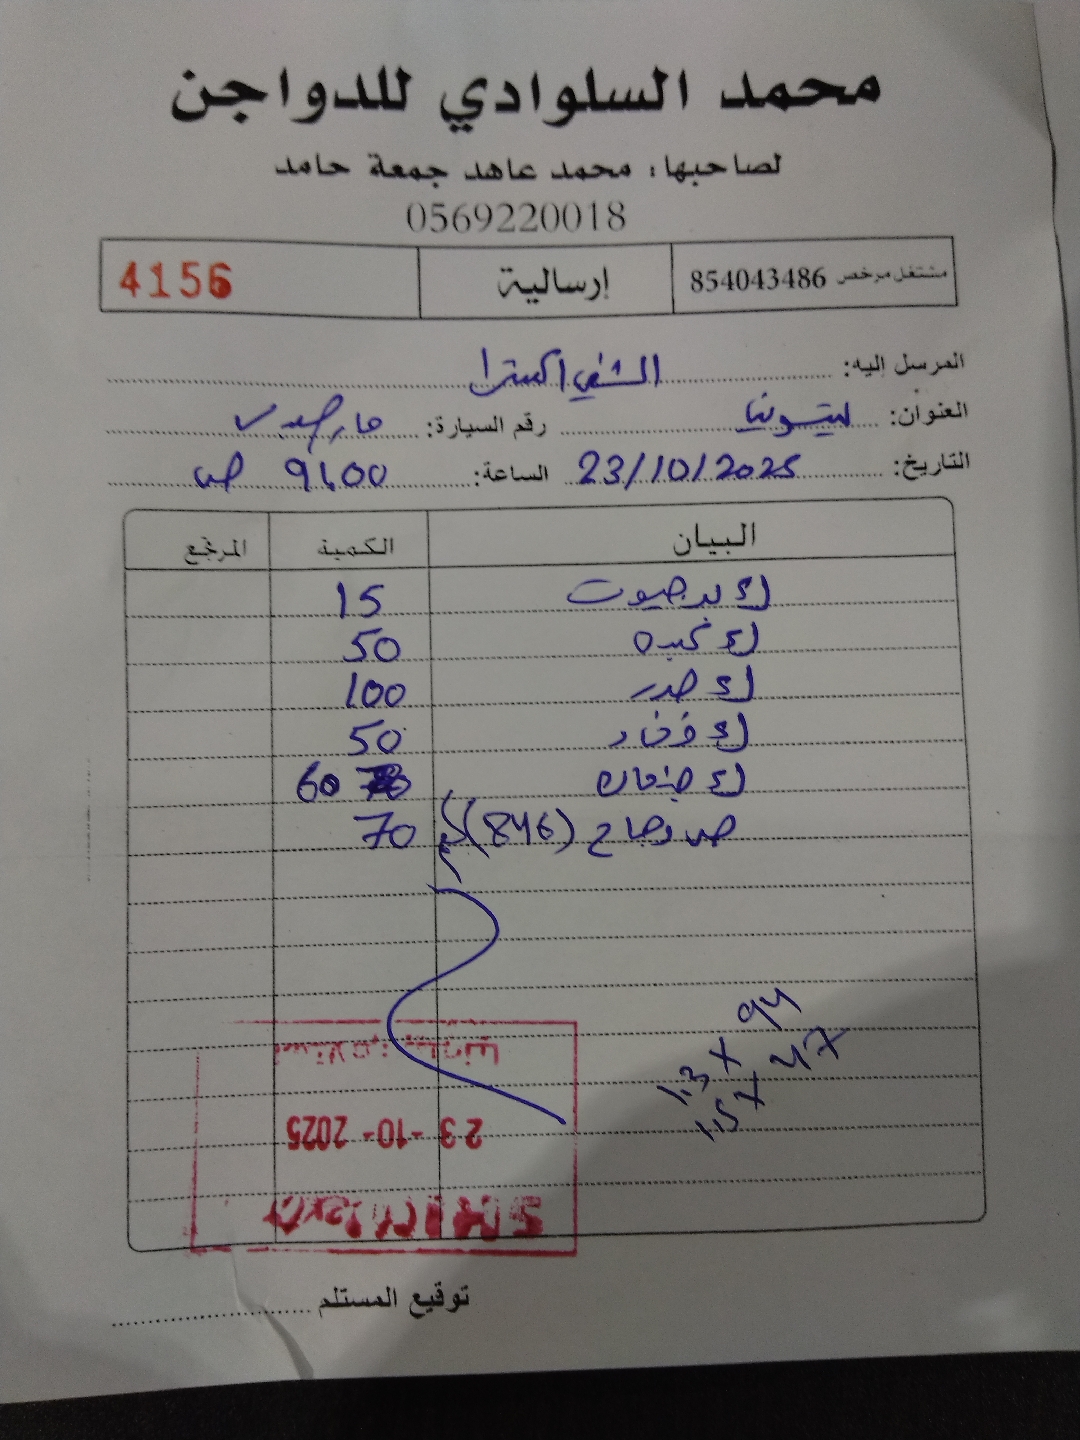 محمد السلوادي للدواجن
لصاحبها: محمد عاهد جمعة حامد
0569220018
مشتغل مرخص 854043486 إرسالية 4156
المرسل إليه: الشني اكسترا
العنوان: رقم السيارة:
التاريخ: 23/10/2025 الساعة: 9:00 ص
البيان الكمية المرتجع
15
كغ كبده 50
كغ صدر 100
كغ فخاد 50
كغ جنحان 60
(846) 70
1.3 X 94
1.5 X 47
23-10-2025
توقيع المستلم